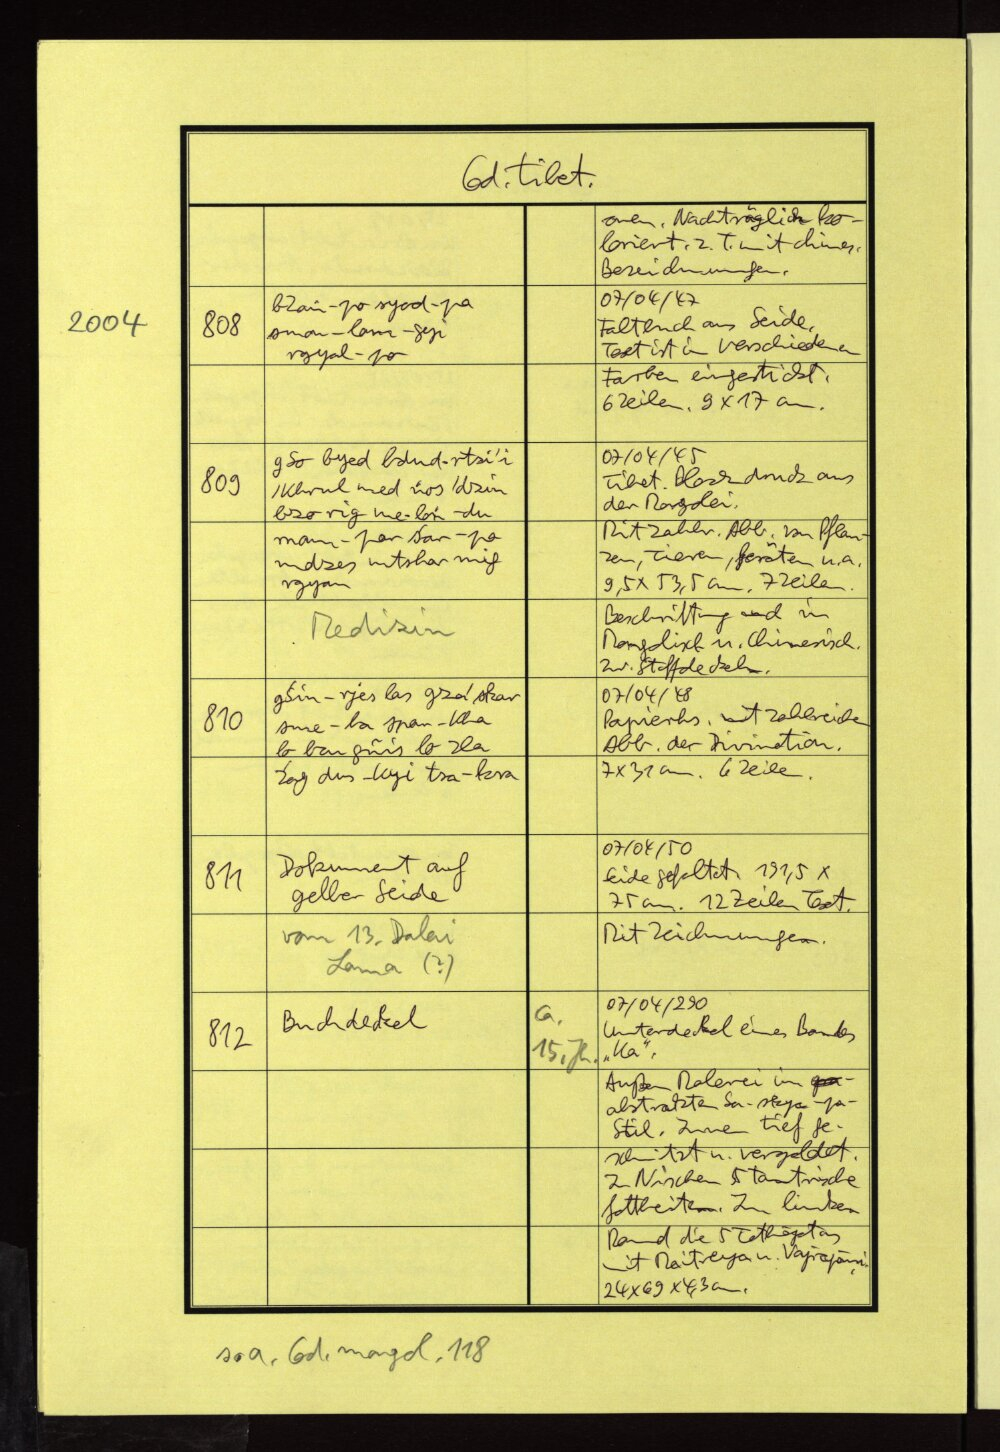 Cod. tibet.
onen. Nachträglich ko-
loriert. z. T. mit chines.
Bezeichnungen.
2004
808
bzań-po spyod-pa
smon-lam-gyi
rgyal-po
07/04/47
Faltbuch aus Seide.
Text ist in verschiedenen
Farben eingestickt.
6 Zeilen. 9 x 17 cm.
809
gso byed bdud-rtsi'i
'khrul med ṅos 'dzin
bzo rig me-loṅ-du
rnam-par śar-pa
mdzes mtshar mig
rgyan
Medizin
07/04/45
Tibet. Blockdruck aus
der Mongolei.
Mit zahlr. Abb. von Pflan-
zen, Tieren, Geräten u.a.
9,5 x 53,5 cm. 7 Zeilen.
Beschriftung auch in
Mongolisch u. Chinesisch.
Zw. Stoffdeckeln.
810
gśin-rjes las gza' skar
sme-ba span-kha
lo bcu gñis lo zla
źag dus-kyi
07/04/48
Papierhs. mit zahlreichen
Abb. der Divination.
7 x 31 cm. 6 Zeilen.
811
Dokument auf
gelber Seide
vom 13. Dalai
Lama (?)
07/04/50
Seide gefaltet. 191,5 x
75 cm. 12 Zeilen Text.
Mit Zeichnungen.
812
Buchdeckel
ca.
15. Jh.
07/04/290
Unterdeckel eines Bandes
„Ka“.
Außen Malerei im
abstrakten Sa-skya-pa-
Stil. Innen tief ge-
schnitzt u. vergoldet.
In Nischen 5 tantrische
Gottheiten. Im linken
Rand die 5 Tathāgatas
mit Maitreya u. Vajrapāṇi.
24 x 69 x 4,3 cm.
s. a. Cod. mongol. 118